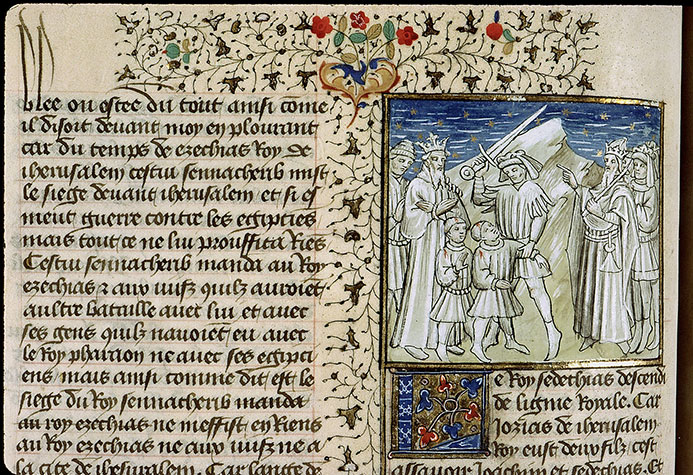 blee ou ostee du tout ainsi come
il disoit devant moy en plourant
car du temps de ezechias Roy de
iherusalem cestui sennacherib mist
le siege devant iherusalem et si es
meut guerre contre les egipties
mais tout ce ne lui prouffita Riēs
Cestui sennacherib manda au Roy
ezechias & aux iuifz quilz auroiēt
aultre bataille avec lui et avec
ses gens quilz navoiēt eu avec
le Roy pharaon ne avec ses egipci
ens / mais ainsi comme dit est le
siege du Roy sennacherib manda
au roy ezechias ne meffist en Riens
au Roy ezechias ne aux iuifz ne a
la cite de iherusalem. Car lange de
e Roy sedechias descendi
de ligne Royale. Car
Iozias de iherusalem
Roy eust deux filz / cest
assavoir Joachim et sedechias et